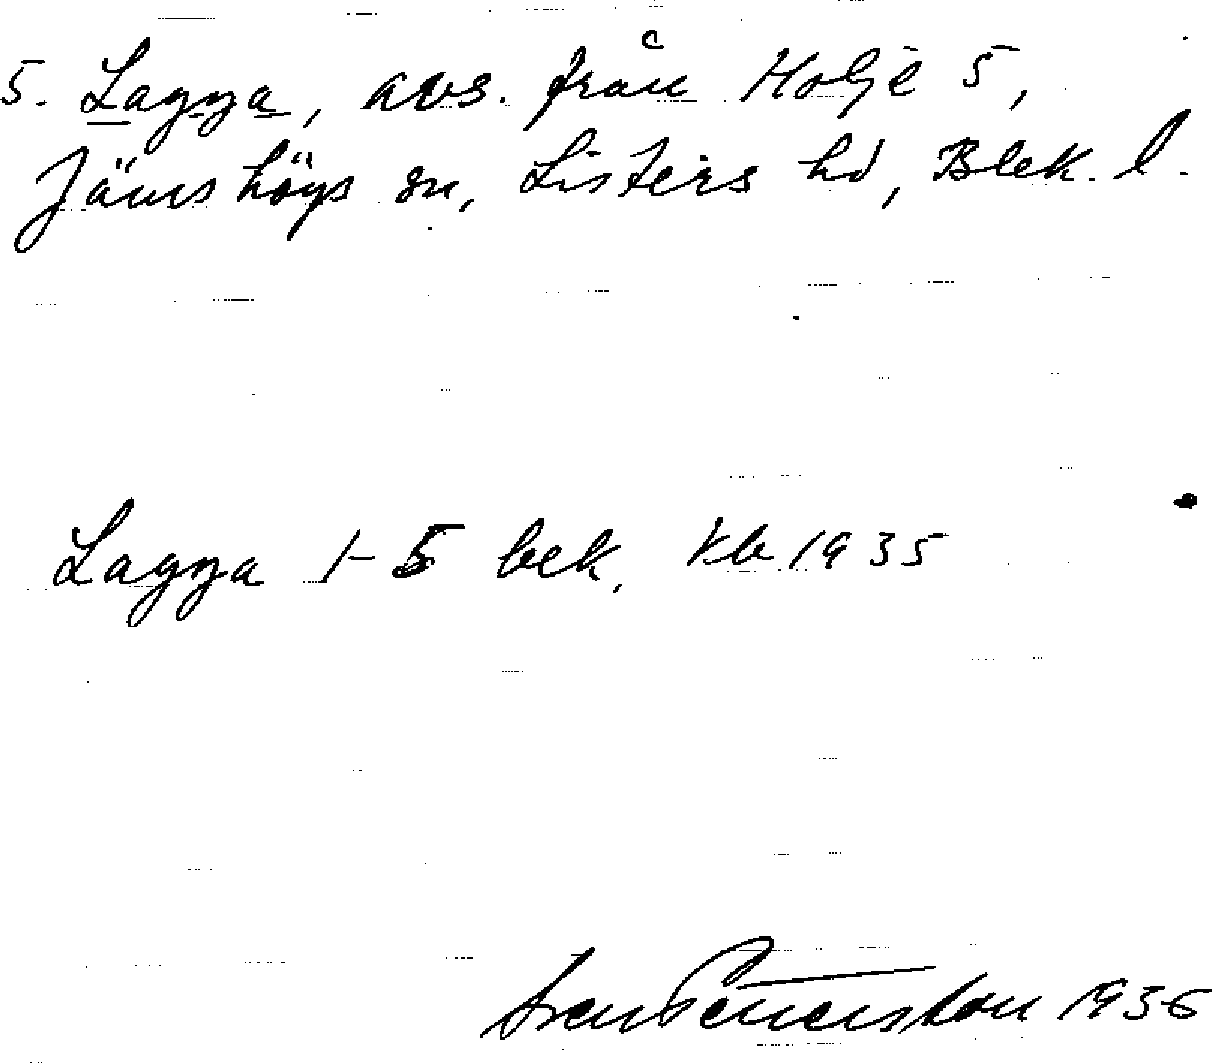 5. Lagga, avs. från Holje 5,
Jämshögs sn, Listers hd, Blek. l.
Lagga 1-5 bek. kb 1935
Sven Benson 1936